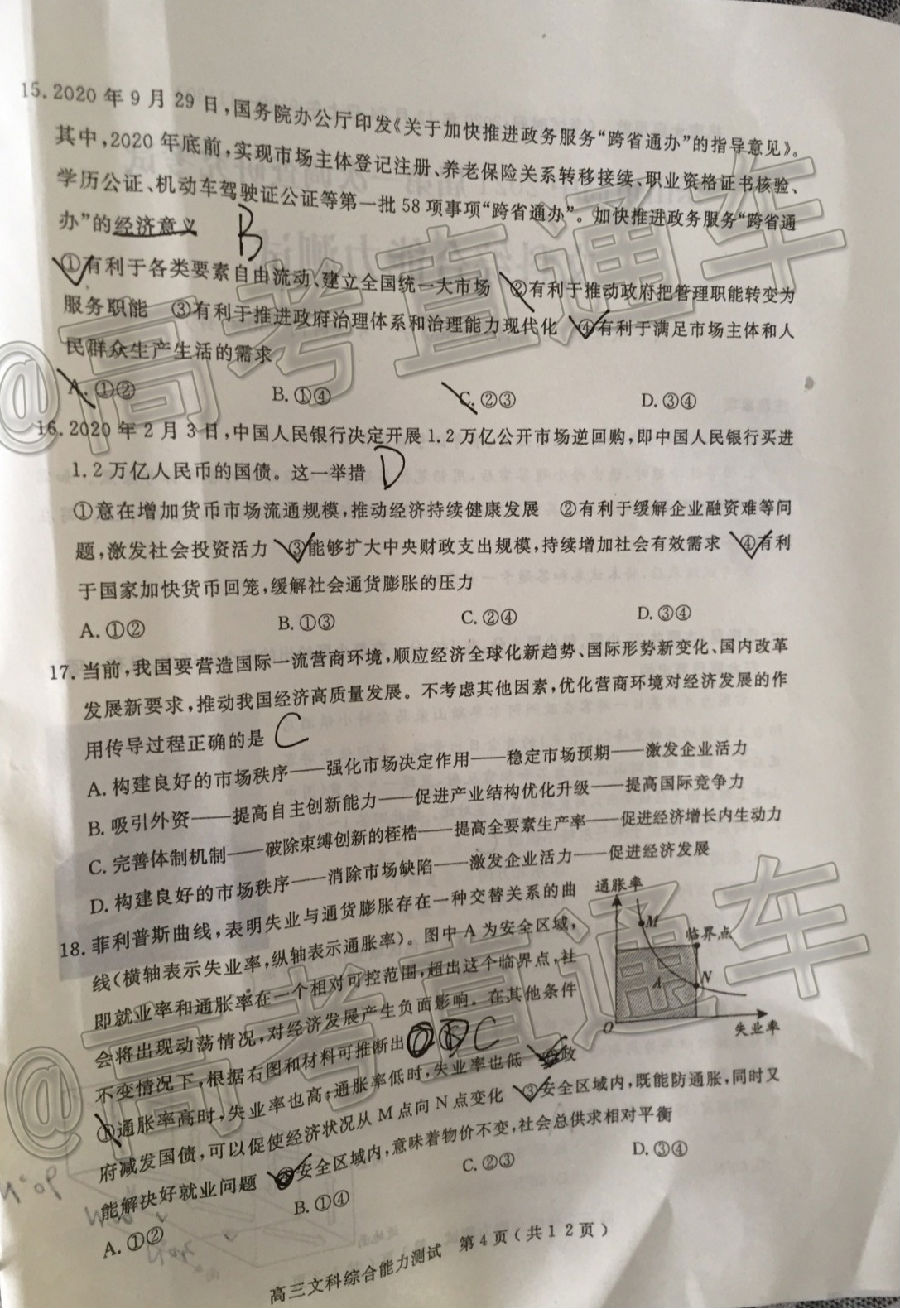 15.2020年9月29日,国务院办公厅印发《关于加快推进政务服务“跨省通办”的指导意见》。
其中,2020年底前,实现市场主体登记注册、养老保险关系转移接续、职业资格证书核验、
学历公证、机动车驾驶证公证等第一批58项事项“跨省通办”。加快推进政务服务“跨省通
办”的经济意义 B
①有利于各类要素自由流动、建立全国统一大市场 ②有利于推动政府把管理职能转变为
服务职能 ③有利于推进政府治理体系和治理能力现代化 ④有利于满足市场主体和人
民群众生产生活的需求
A.①② B.①④ C.②③ D.③④
16.2020年2月3日,中国人民银行决定开展1.2万亿公开市场逆回购,即中国人民银行买进
1.2万亿人民币的国债。这一举措 D
①意在增加货币市场流通规模,推动经济持续健康发展 ②有利于缓解企业融资难等问
题,激发社会投资活力 ③能够扩大中央财政支出规模,持续增加社会有效需求 ④有利
于国家加快货币回笼,缓解社会通货膨胀的压力
A.①② B.①③ C.②④ D.③④
17.当前,我国要营造国际一流营商环境,顺应经济全球化新趋势、国际形势新变化、国内改革
发展新要求,推动我国经济高质量发展。不考虑其他因素,优化营商环境对经济发展的作
用传导过程正确的是 C
A.构建良好的市场秩序——强化市场决定作用——稳定市场预期——激发企业活力
B.吸引外资——提高自主创新能力——促进产业结构优化升级——提高国际竞争力
C.完善体制机制——破除束缚创新的桎梏——提高全要素生产率——促进经济增长内生动力
D.构建良好的市场秩序——消除市场缺陷——激发企业活力——促进经济发展
18.菲利普斯曲线,表明失业与通货膨胀存在一种交替关系的曲
线(横轴表示失业率,纵轴表示通胀率)。图中A为安全区域,
即就业率和通胀率在一个相对可控范围,超出这个临界点,社
会将出现动荡情况,对经济发展产生负面影响。在其他条件
不变情况下,根据右图和材料可推断出 C
①通胀率高时,失业率也高;通胀率低时,失业率也低 政
府减发国债,可以促使经济状况从M点向N点变化 ③安全区域内,既能防通胀,同时又
能解决好就业问题 安全区域内,意味着物价不变,社会总供求相对平衡
A.①② B.①④ C.②③ D.③④
通胀率
M
临界点
A
N
O
失业率
高三文科综合能力测试 第4页(共12页)
@高考直通车
@高考直通车